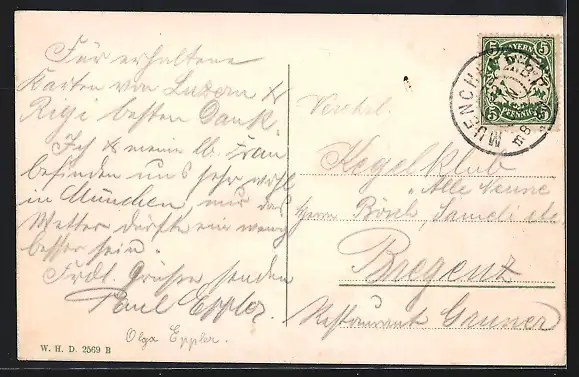 Für erhaltene
Karten von Luzern &
Rigi besten Dank.
Ich & meine lb. Frau
befinden uns sehr wohl
in München, nur das
Wetter dürfte ein wenig
besser sein.
Frdl. Grüsse senden
Paul Eppler.
Olga Eppler.
W. H. D. 2569 B
5 BAYERN 5
5 PFENNIG 5
MUENCHEN
Verehrl.
Kegelklub
"Alle Neune
Herrn Bösch, etc
Bregenz
Restaurant Gruner